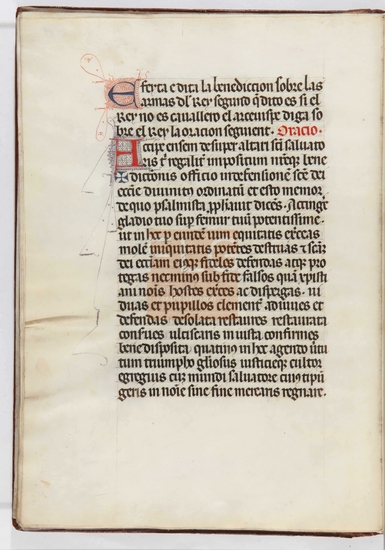 E ferta e dita la benediccion sobre las
armas dl Rey segund q̄ dito es si el
Rey no es cauallero el arceuispe diga so
bre el Rey la oracion seguient. Oracio.
Accipe ensem desuper altari sc̄i saluato
ris et regaliť impositum nr̄eqȝ bene
dictionis officio in defensionem sc̄e dei
ecc̄ie diuinit̄ ordinatū et esto memor
de quo psalmista ꝓph̄auit dicēs. Accinge
gladio tuo sup femur tuū potentissime.
ut in hoc ꝑ eundē uim equitatis exerceas
molē iniquitatis potēt̄ destruas et sc̄āꝫ
dei ecc̄iam eiꝰqȝ fideles defendas atqȝ pro
tegas nec minꝰ sub fide falsos quā xp̄isti
ani noīs hostes execres ac dispergas. ui
duas et pupillos clement̄ adiuues et
defendas desolata restaures restaurata
conserues ulciscaris iniusta confirmes
bene disposita quatinꝰ in hoc agendo uir̄tu
tum triumpho gl̄iosus iusticieqȝ cultor
egregius cuȝ mundi saluatore cuiꝰ tipū
geris in noīe sine fine merearis regnare.